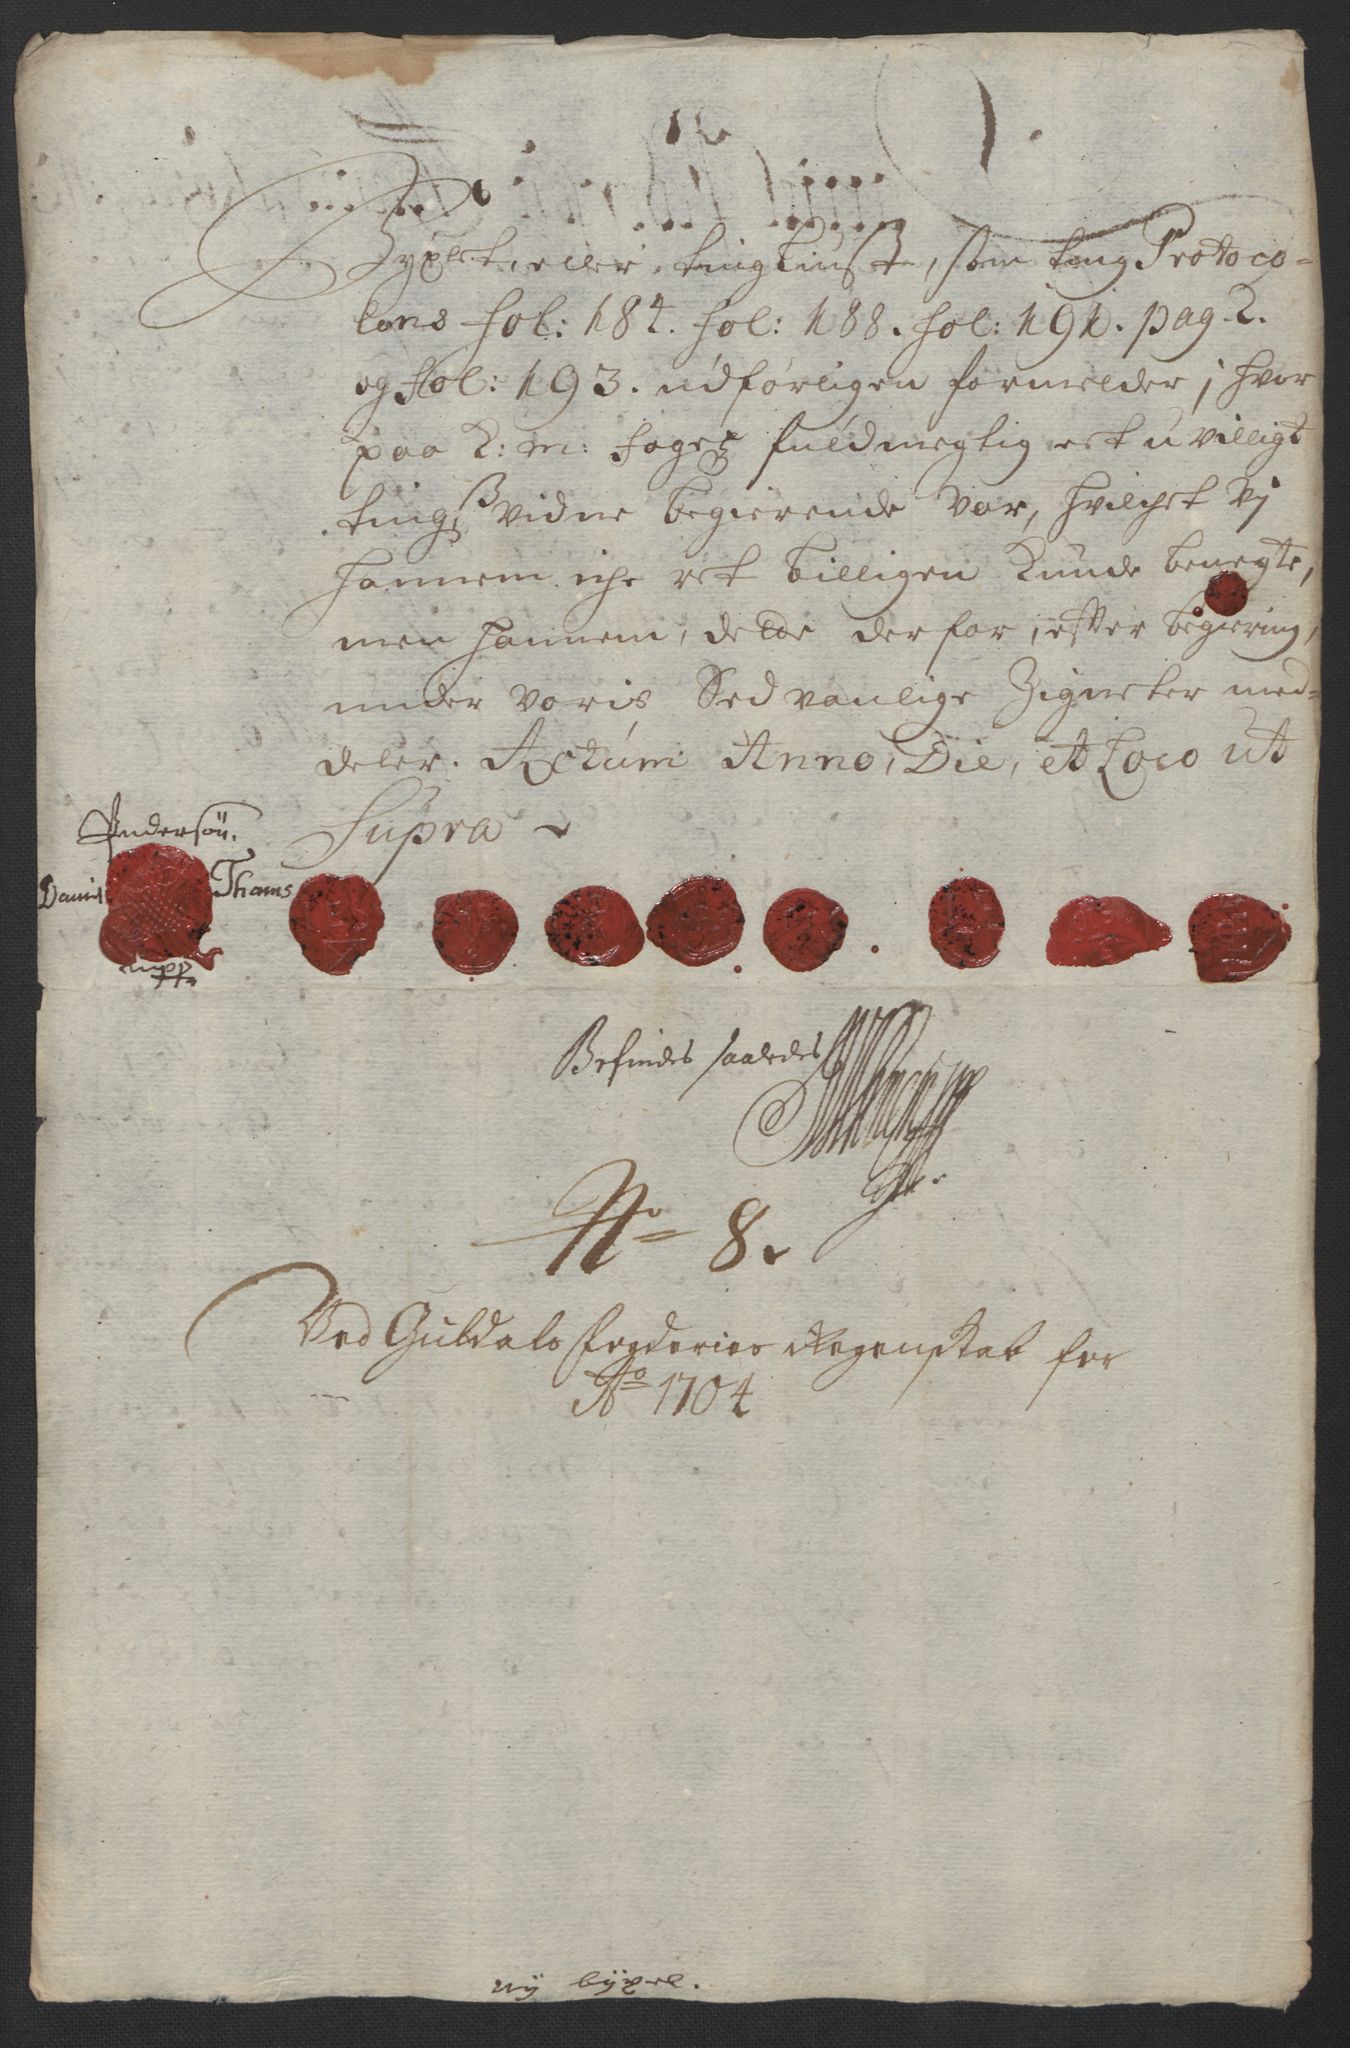 Byxlet, eller tingliust, som ting Protoco-
lens fol: 184. fol: 188. fol: 191. pag. 2.
og fol: 193. udførligen formelder, hvor
paa K: m: foget fuldmegtig et uvilligt
tingsvidne begierende var, hvilchet vj
hannem iche ret billigen kunde benegte,
men hannem, dette derfor, efter begiering,
under voris Sedvanlige Zigneter med-
deler. Actum Anno, Die, et Loco ut
Supra
Andersøn.
Daniel Thams
mpp
Befindes saaledes
No 8.
Ved Guldals fogderies Regenskab for
Ao 1704
ny byxel.